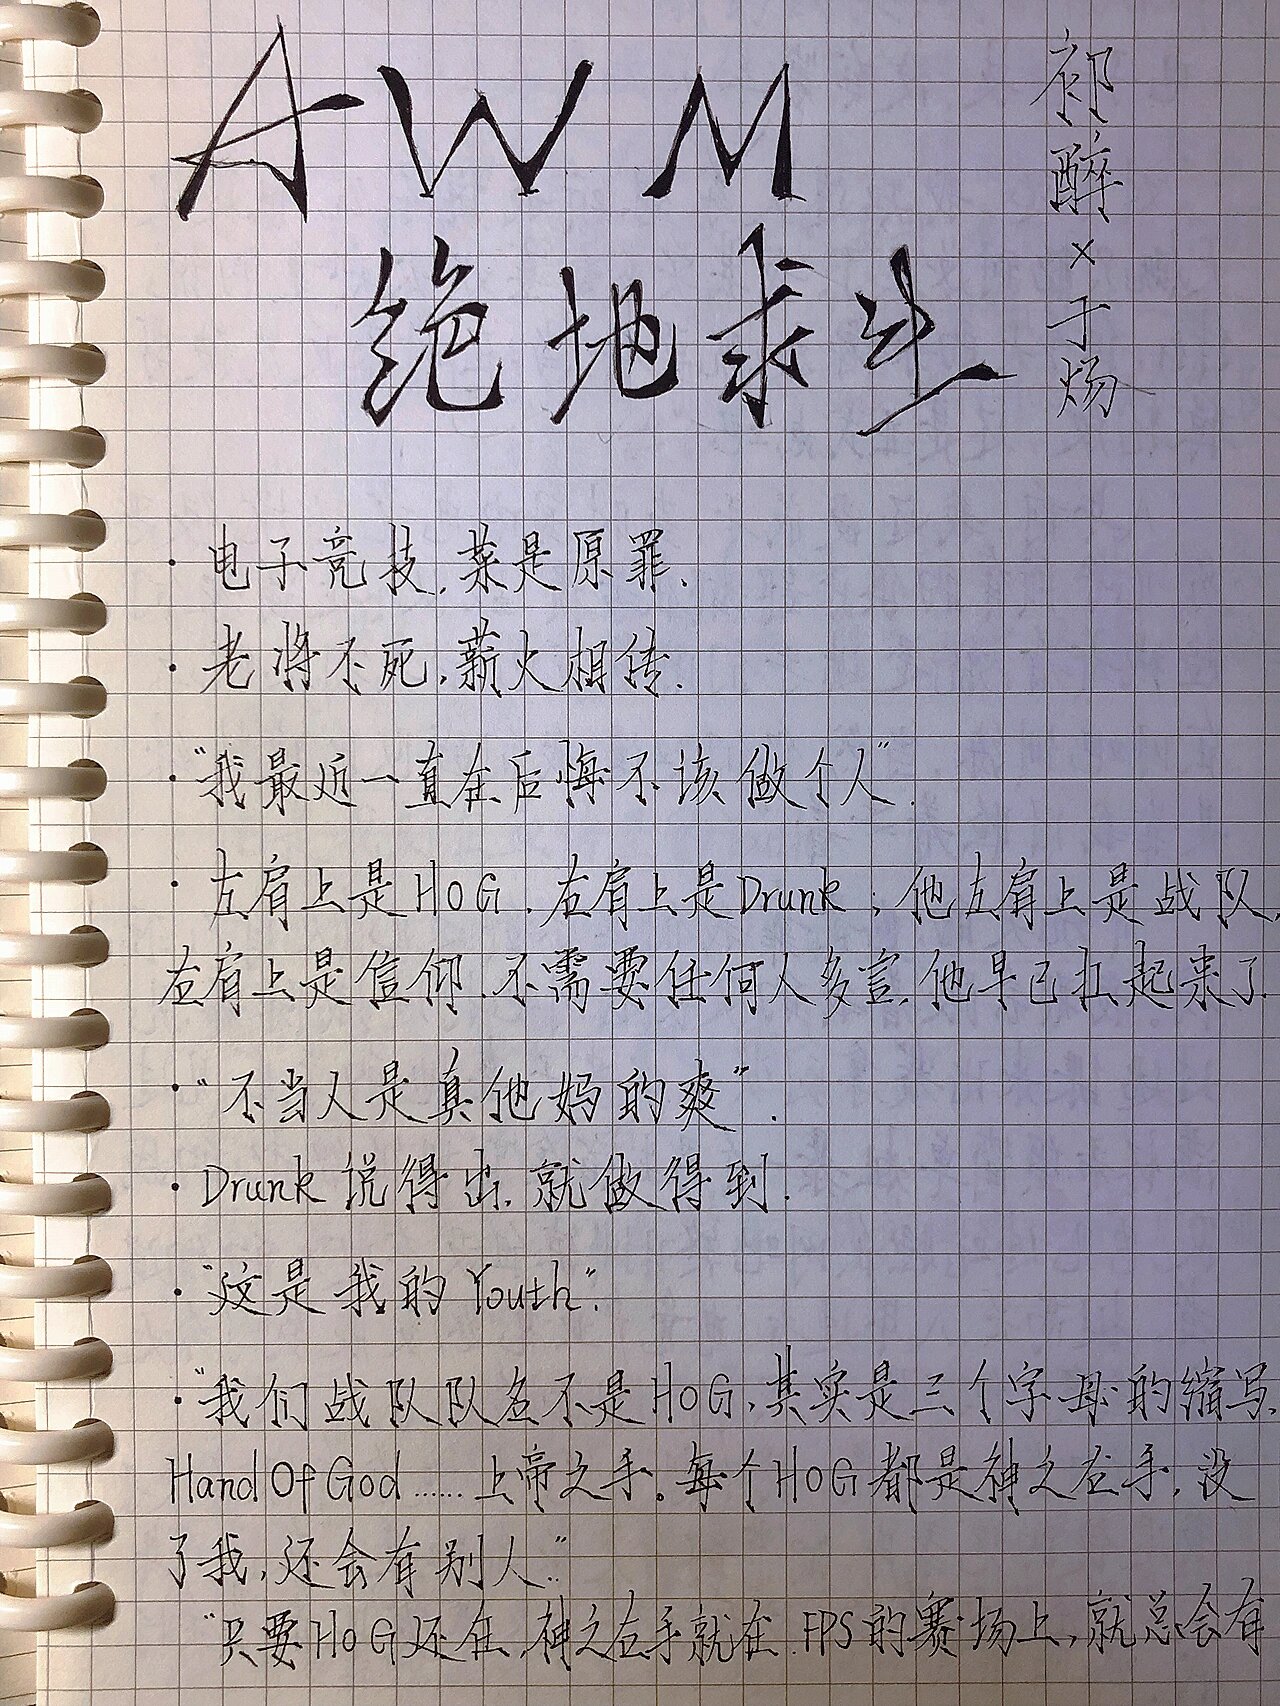 AWM
绝地求生
祁醉×于炀
·电子竞技,菜是原罪.
·老将不死,薪火相传.
·"我最近一直在后悔不该做个人".
·左肩上是HOG,右肩上是Drunk;他左肩上是战队,
右肩上是信仰.不需要任何人多言,他早已扛起来了
·"不当人是真他妈的爽".
·Drunk说得出,就做得到.
·"这是我的Youth".
·"我们战队队名不是HOG,其实是三个字母的缩写,
Hand Of God……上帝之手。每个HOG都是神之右手,没
了我,还会有别人."
"只要HOG还在,神之右手就在.FPS的赛场上,就总会有